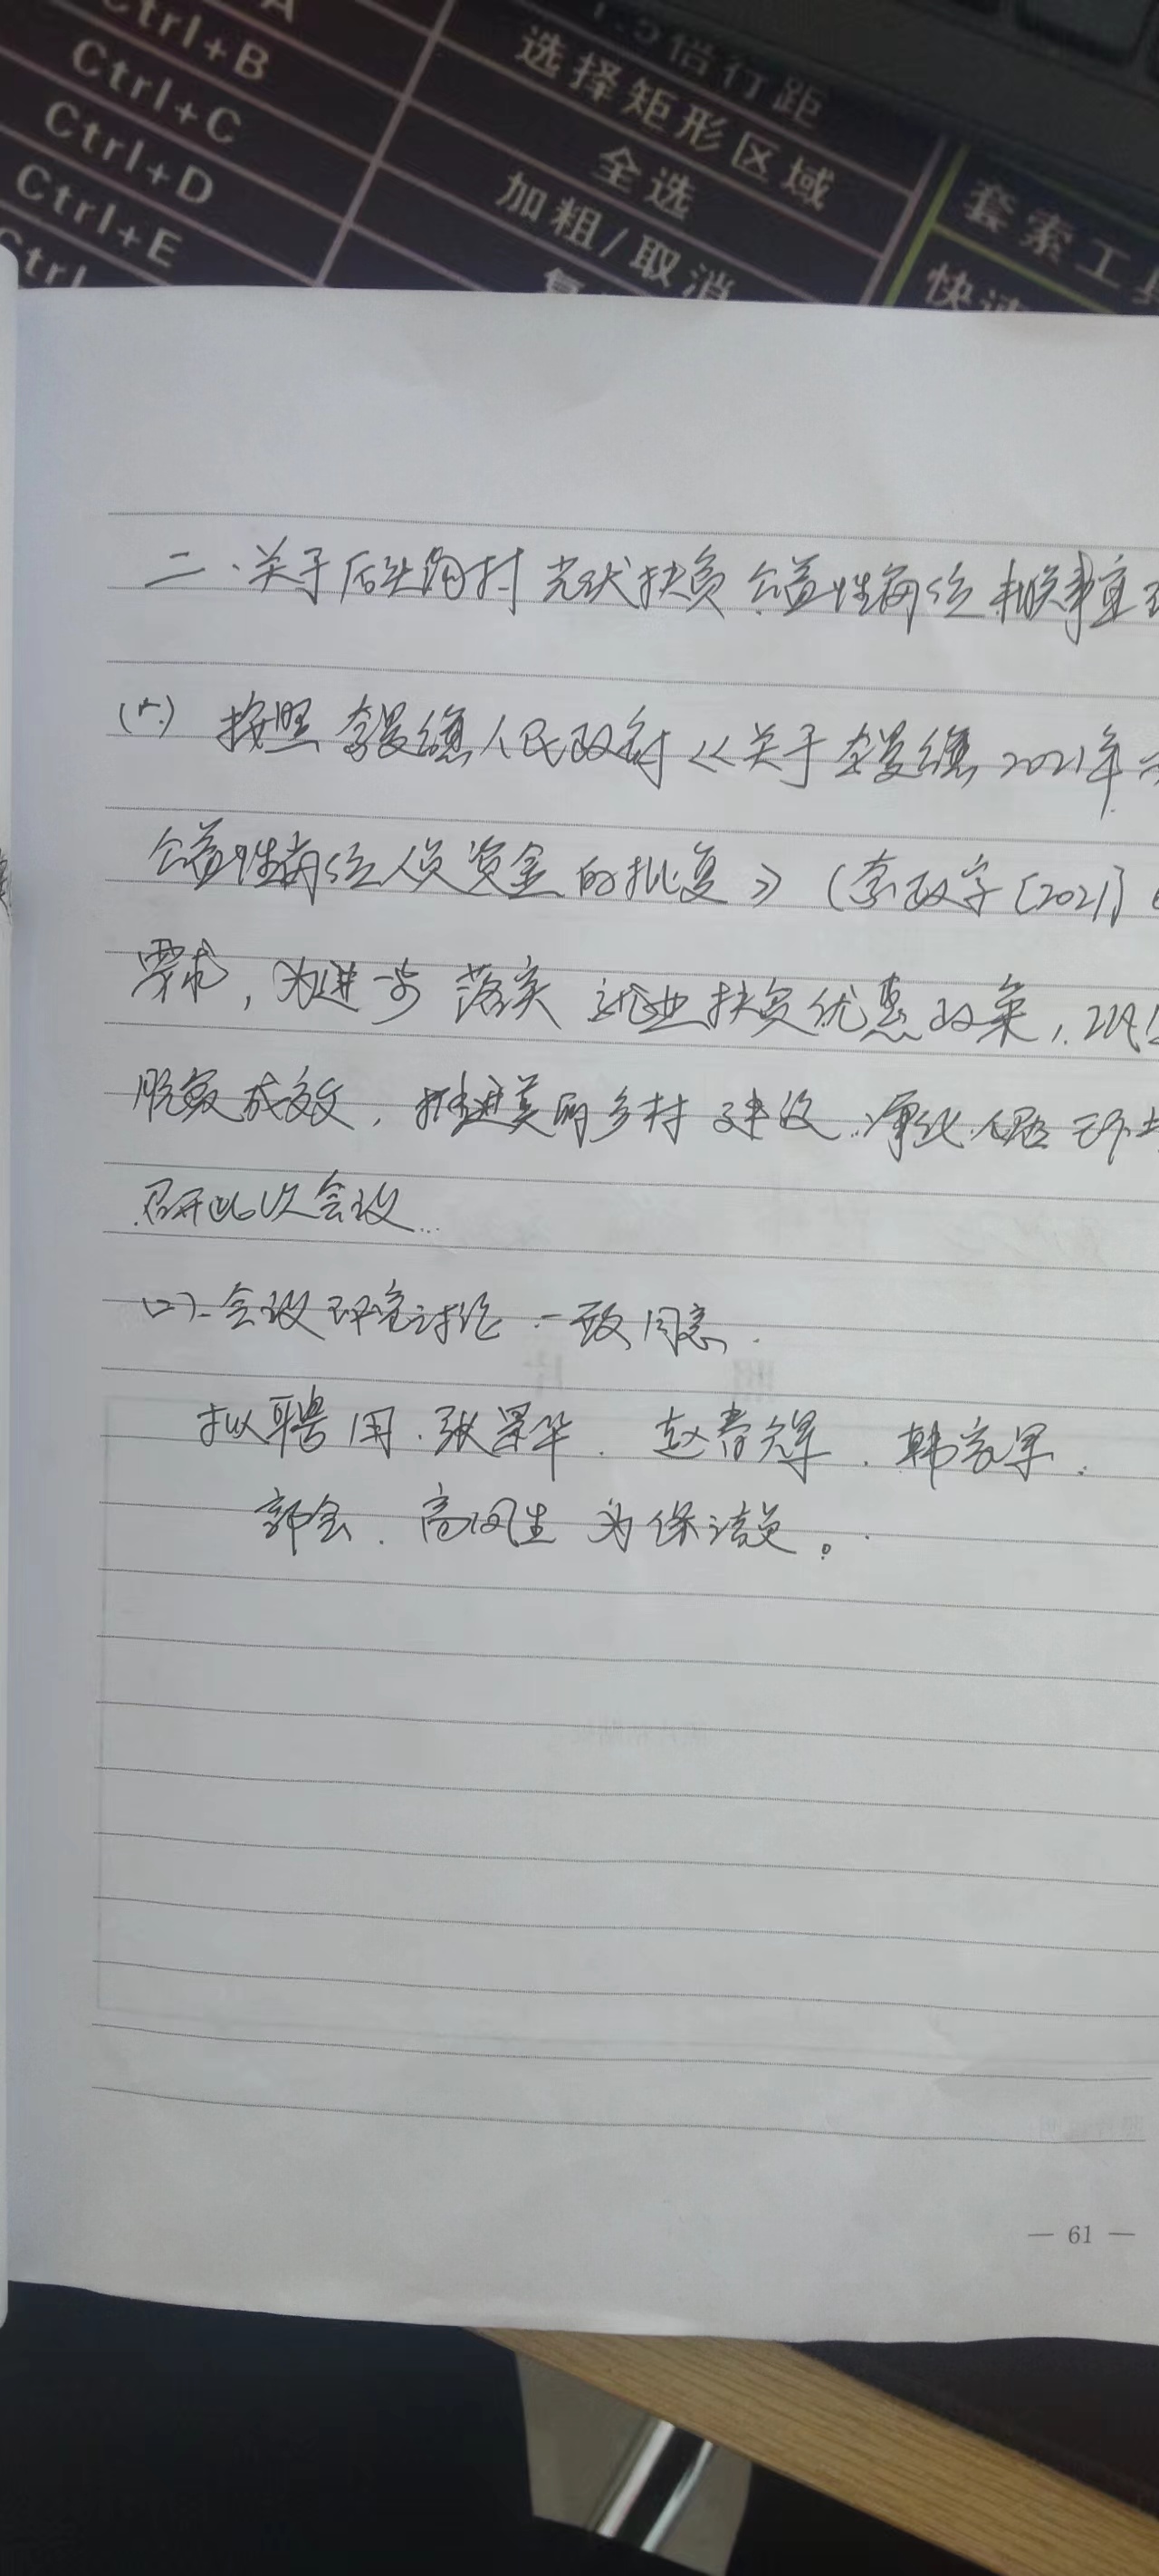 Ctrl+B
Ctrl+C
Ctrl+D
Ctrl+E
Ctrl
1.5倍行距
选择矩形区域
全选
加粗/取消
套索工具
快速
二.关于后 沟村光伏扶贫公益性岗位相关事宜
(一) 按照 人民政府《关于 2021年
公益性岗位人员资金的批复》( 政字〔2021〕6
要求,为进一步落实就业扶贫优惠政策,巩固
脱贫成效,推进美丽乡村建设,净化人居环境
召开此次会议.
(二).会议研究讨论一致同意.
拟聘用.张 华.赵春辉.韩家军.
郭会.高河生为保洁员。
— 61 —